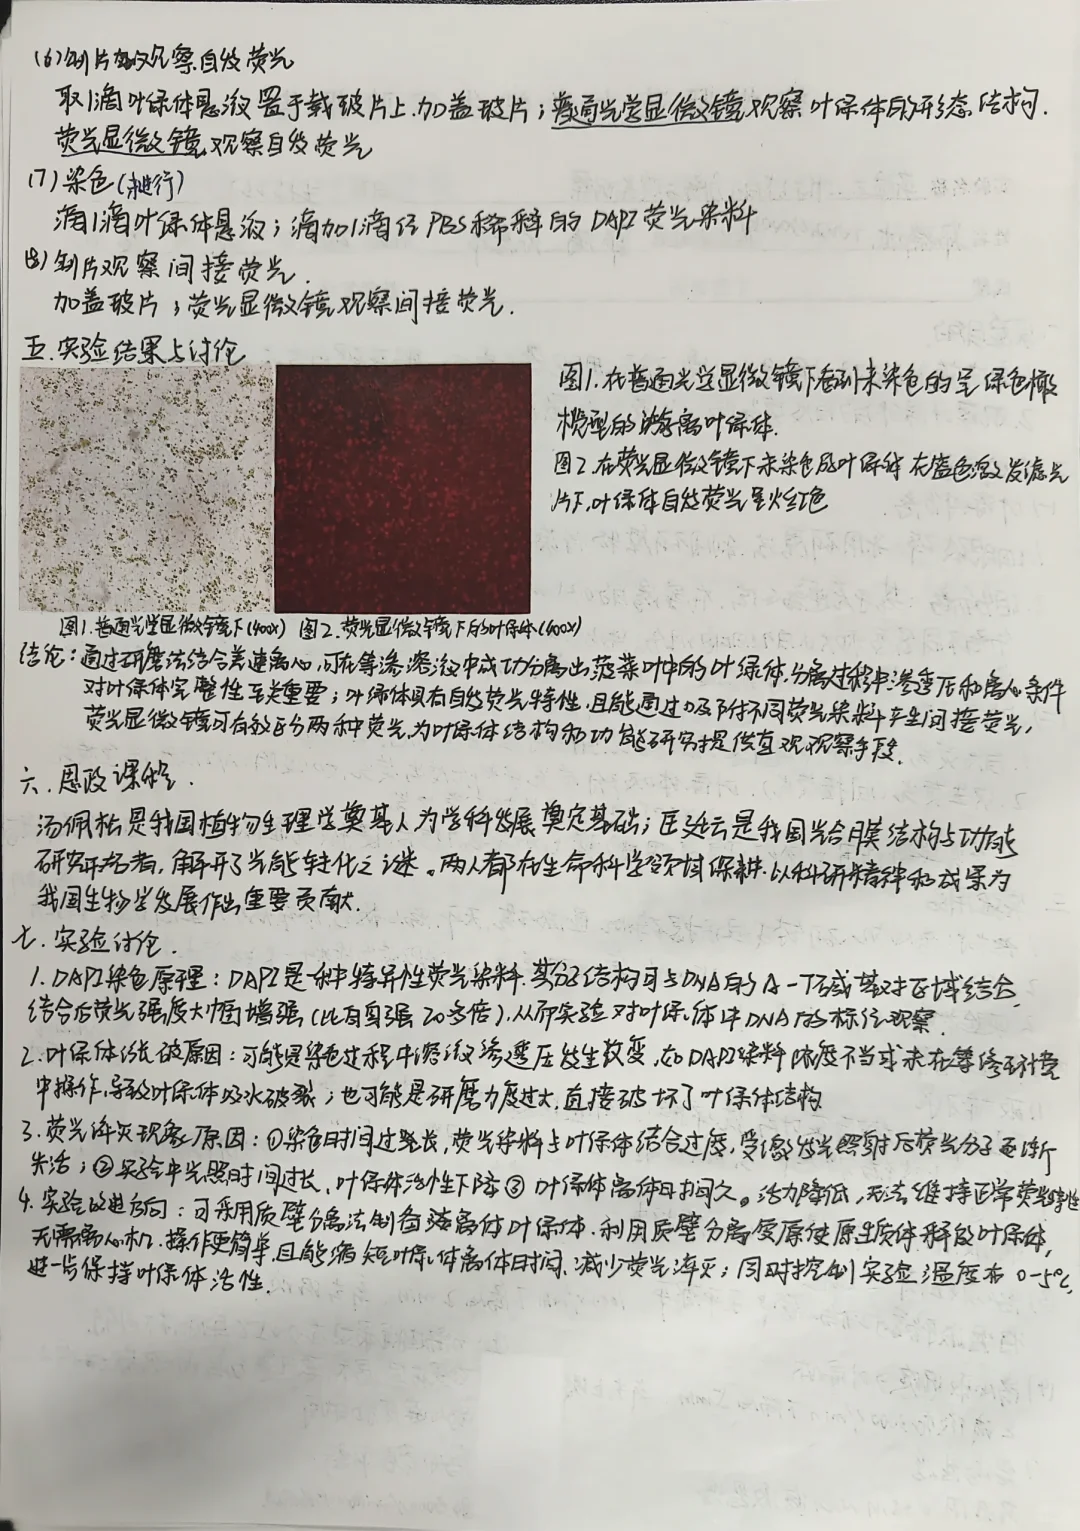 (6)制片观察自发荧光
取1滴叶绿体悬液置于载玻片上,加盖玻片;普通光学显微镜观察叶绿体的形态结构.
荧光显微镜观察自发荧光
(7)染色(未进行)
滴1滴叶绿体悬液;滴加1滴经PBS稀释的DAPI荧光染料
(8)制片观察间接荧光.
加盖玻片;荧光显微镜观察间接荧光.
五.实验结果与讨论
图1.在普通光学显微镜下看到未染色的呈绿色橄
榄型的游离叶绿体.
图2.在荧光显微镜下未染色的叶绿体在蓝色激发滤光
片下,叶绿体自发荧光呈火红色
图1.普通光学显微镜下(400x) 图2.荧光显微镜下的叶绿体(400x)
结论:通过研磨法结合差速离心,可在等渗溶液中成功分离出菠菜叶中的叶绿体,分离过程中渗透压和离心条件
对叶绿体完整性至关重要;叶绿体具有自发荧光特性,且能通过吸附不同荧光染料产生间接荧光,
荧光显微镜可有效区分两种荧光,为叶绿体结构和功能研究提供直观观察手段.
六.思政课程.
汤佩松是我国植物生理学奠基人为学科发展奠定基础;匡廷云是我国光合膜结构与功能
研究开拓者,解开了光能转化之谜。两人都在生命科学领域深耕.以科研精神和成果为
我国生物学发展作出重要贡献.
七.实验讨论.
1.DAPI染色原理:DAPI是一种特异性荧光染料.其分子结构可与DNA的A-T碱基对区域结合,
结合后荧光强度大幅增强(比自身强20多倍),从而实验对叶绿体中DNA的标位观察.
2.叶绿体胀破原因:可能是染色过程中溶液渗透压发生改变,如DAPI染料浓度不当或未在等渗环境
中操作,导致叶绿体吸水破裂;也可能是研磨力度过大,直接破坏了叶绿体结构
3.荧光淬灭现象原因:①染色时间过长,荧光染料与叶绿体结合过度,受激发光照射后荧光分子逐渐
失活;②实验中光照时间过长,叶绿体活性下降③叶绿体离体时间久。活力降低,无法维持正常荧光特性
4.实验改进方向:可采用质壁分离法制备游离体叶绿体.利用质壁分离复原使原生质体释放叶绿体,
无需离心机.操作更简单,且能缩短叶绿体离体时间,减少荧光淬灭;同时控制实验温度在0-5℃,
进一步保持叶绿体活性.